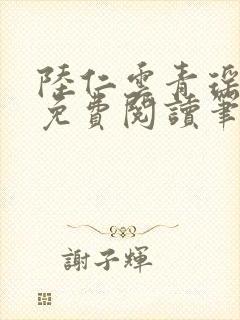 陸仁雲青瑶
免費閱讀筆
謝子輝